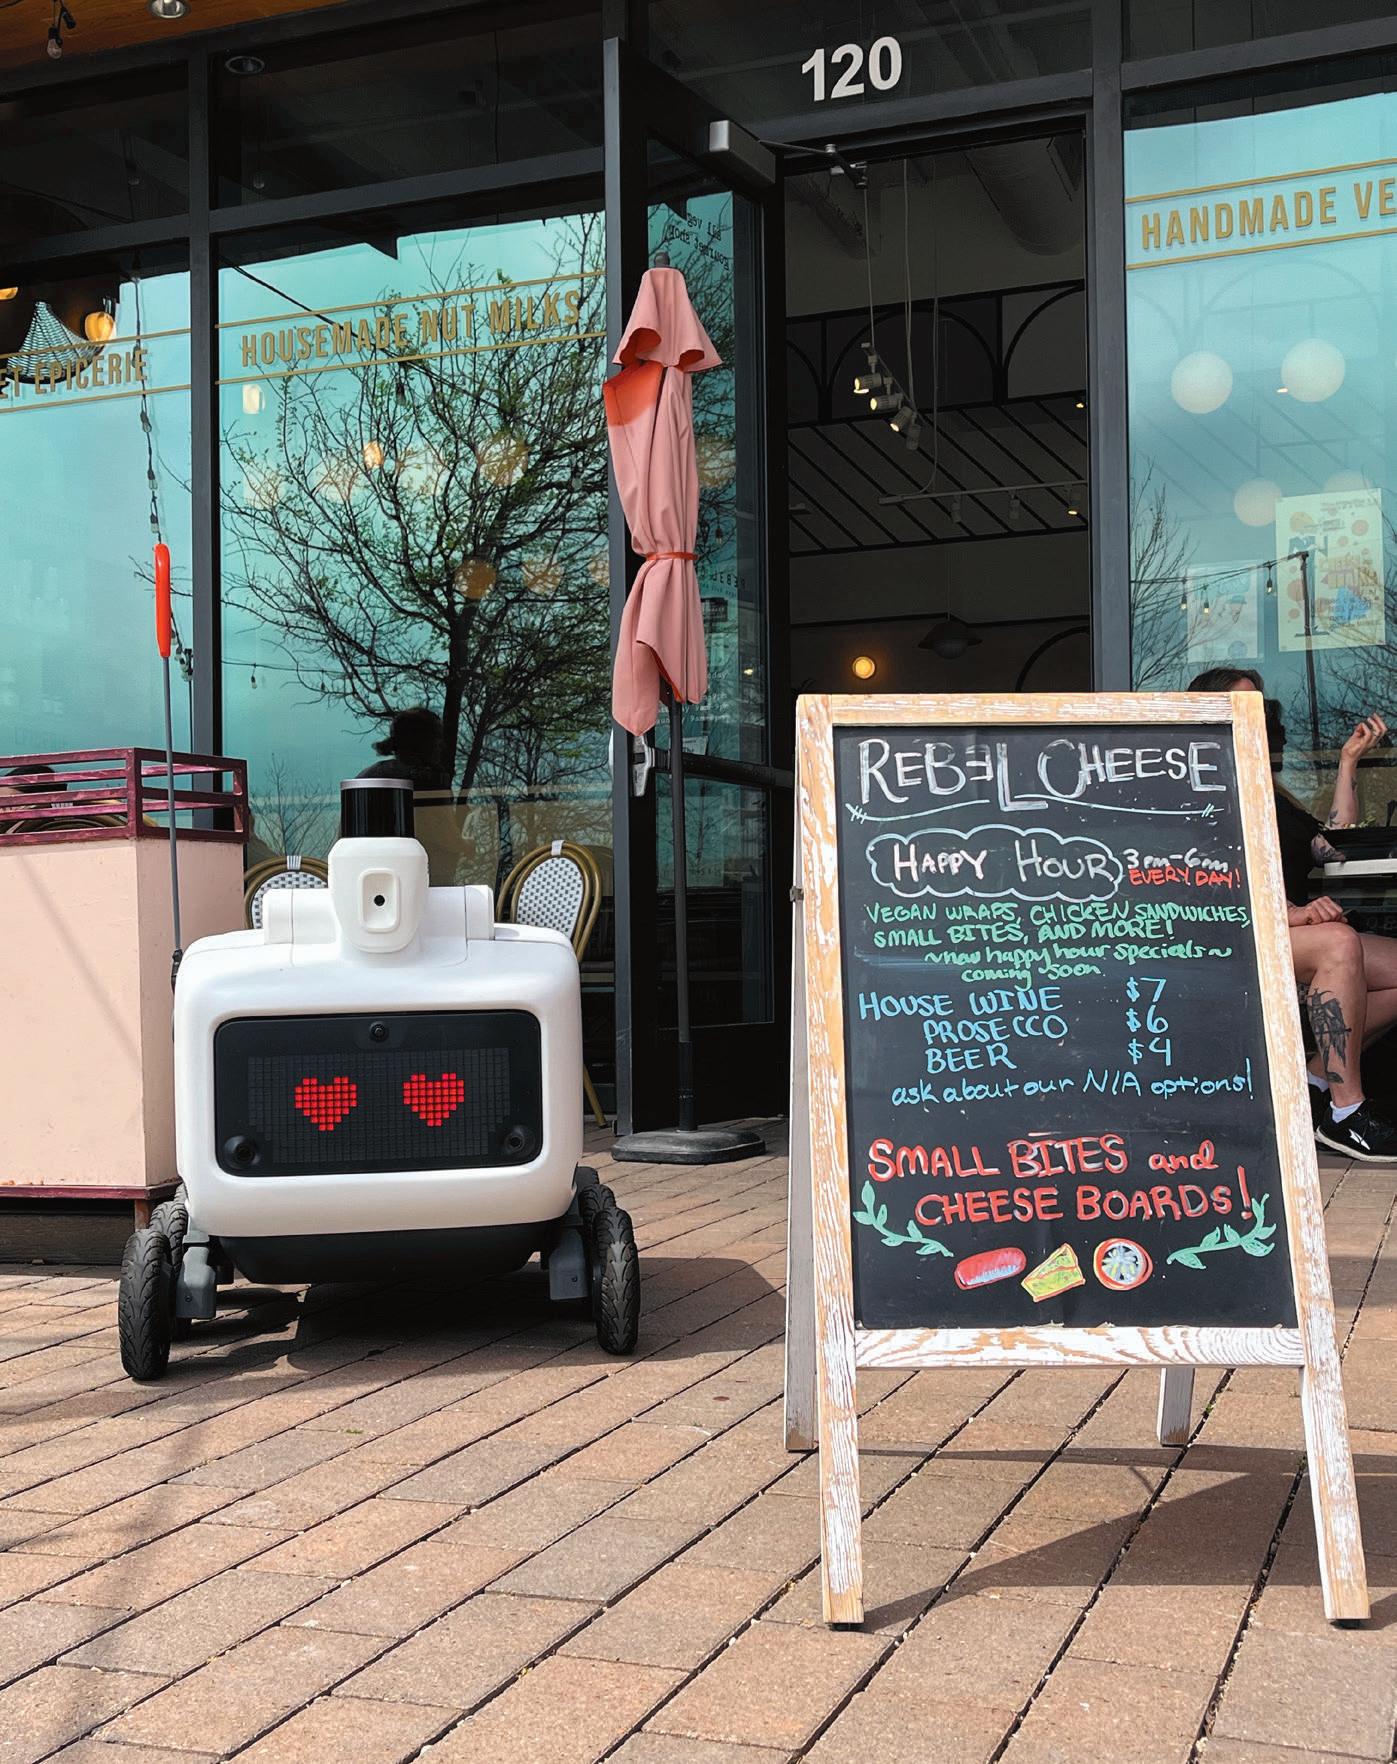 120
HANDMADE VE
HOUSEMADE NUT MILKS
ET EPICERIE
REBEL CHEESE
HAPPY HOUR 3pm-6pm
EVERY DAY!
VEGAN WRAPS, CHICKEN SANDWICHES,
SMALL BITES, AND MORE!
~new happy hour specials~
coming soon.
HOUSE WINE $7
PROSECCO $6
BEER $4
ask about our N/A options!
SMALL BITES and
CHEESE BOARDS!